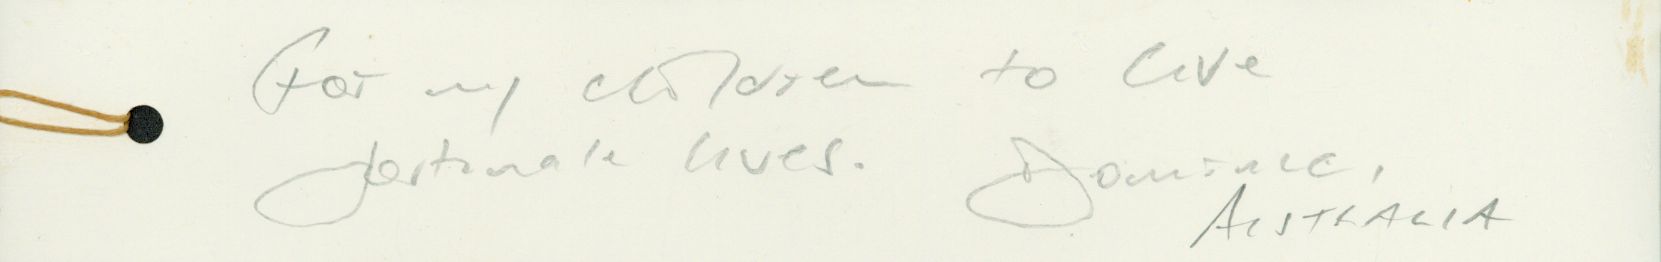 For my children to live
fortunate lives. Dominic,
AUSTRALIA